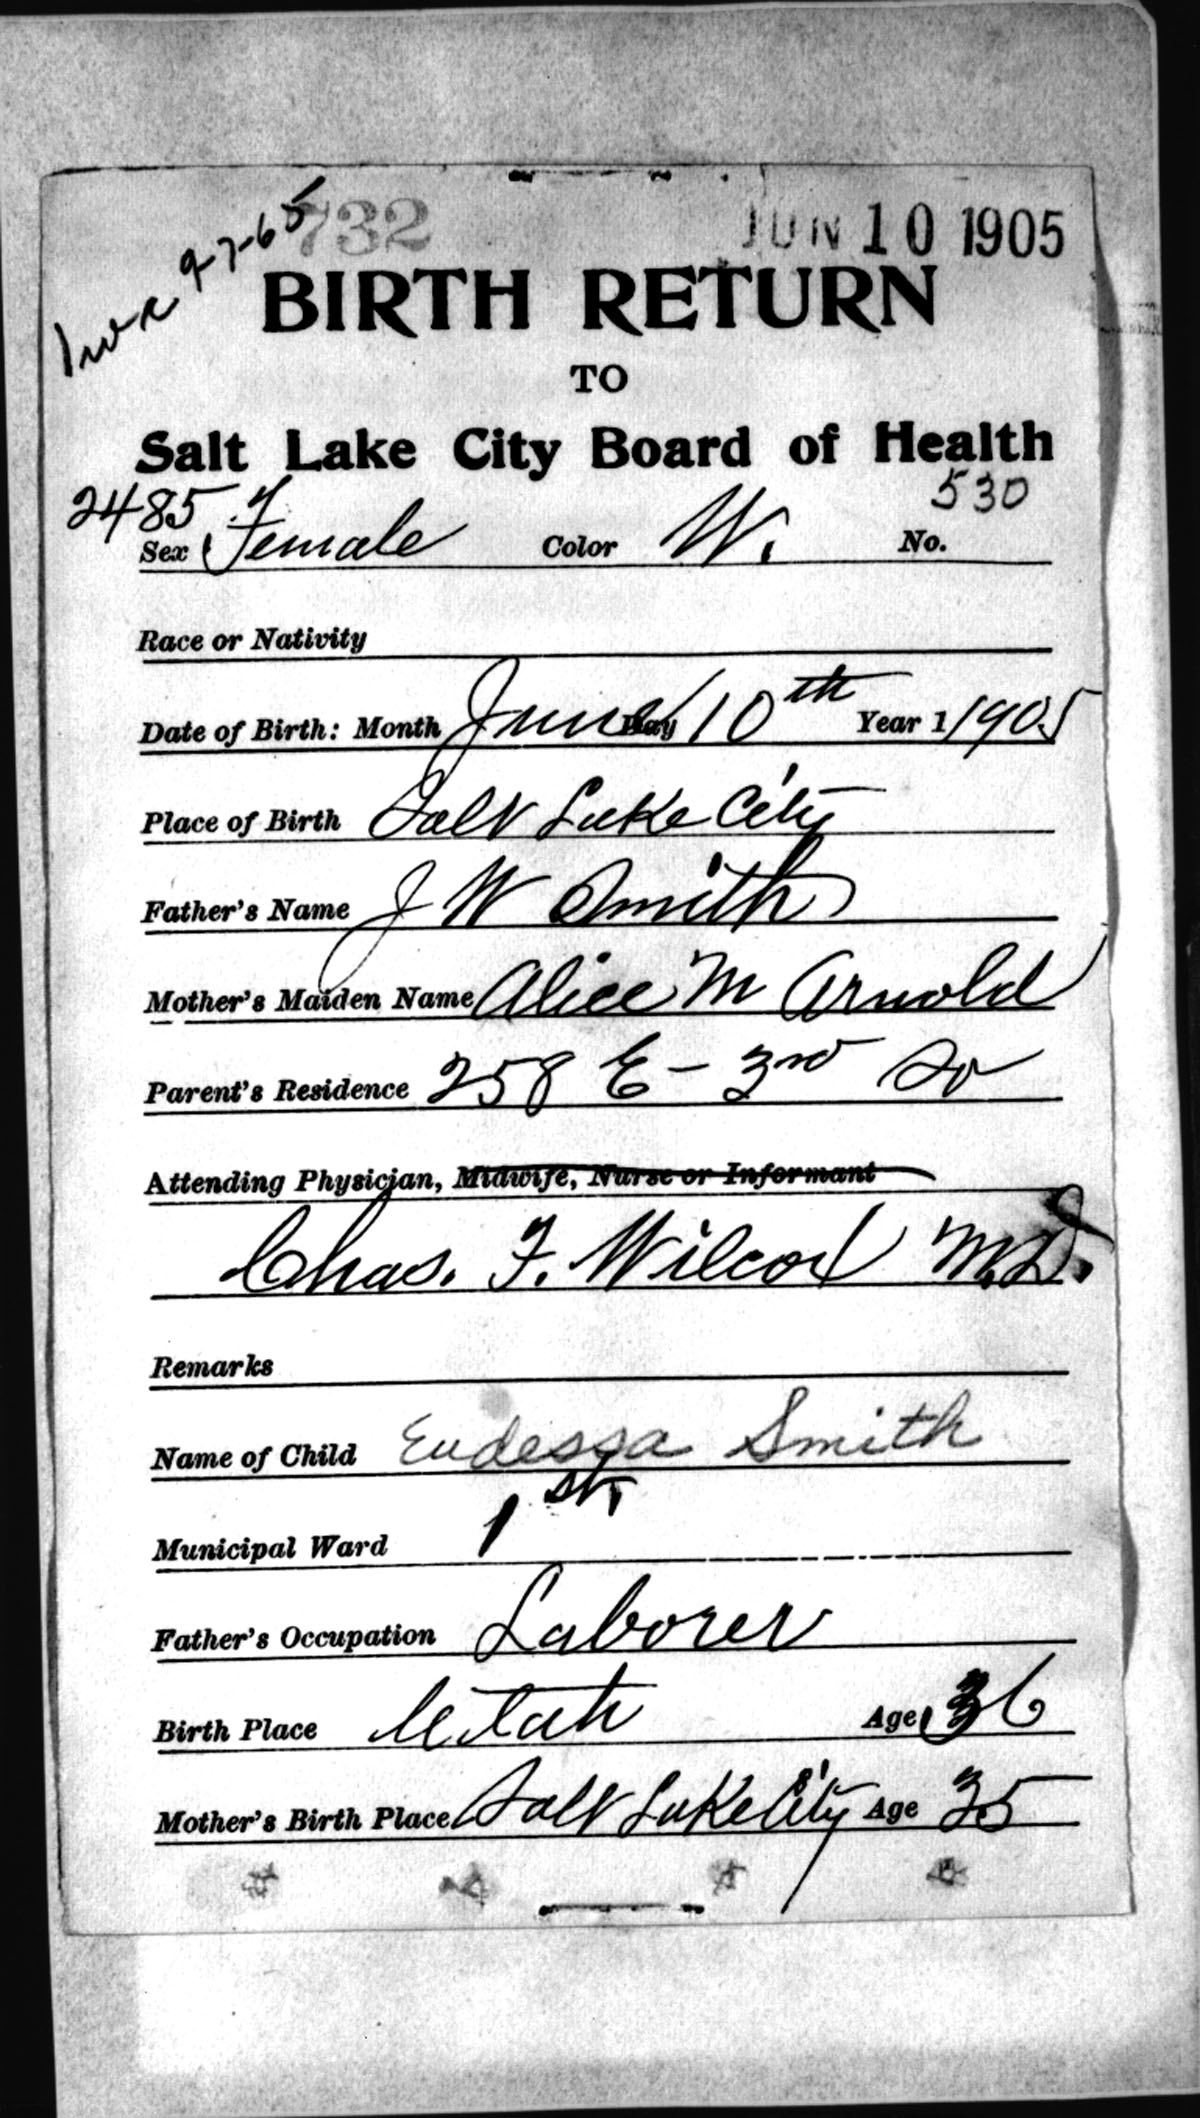 732 JUN 10 1905
9-7-65
BIRTH RETURN
TO
Salt Lake City Board of Health
2485 530
Sex Female Color W. No.
Race or Nativity
Date of Birth: Month June Day 10th Year 1 1905
Place of Birth Salt Lake City
Father's Name J W Smith
Mother's Maiden Name Alice M Arnold
Parent's Residence 258 E - 3rd So
Attending Physician, Midwife, Nurse or Informant
Chas. F. Wilcox M.D.
Remarks
Name of Child Eudessa Smith
Municipal Ward 1st
Father's Occupation Laborer
Birth Place Utah Age 36
Mother's Birth Place Salt Lake City Age 35